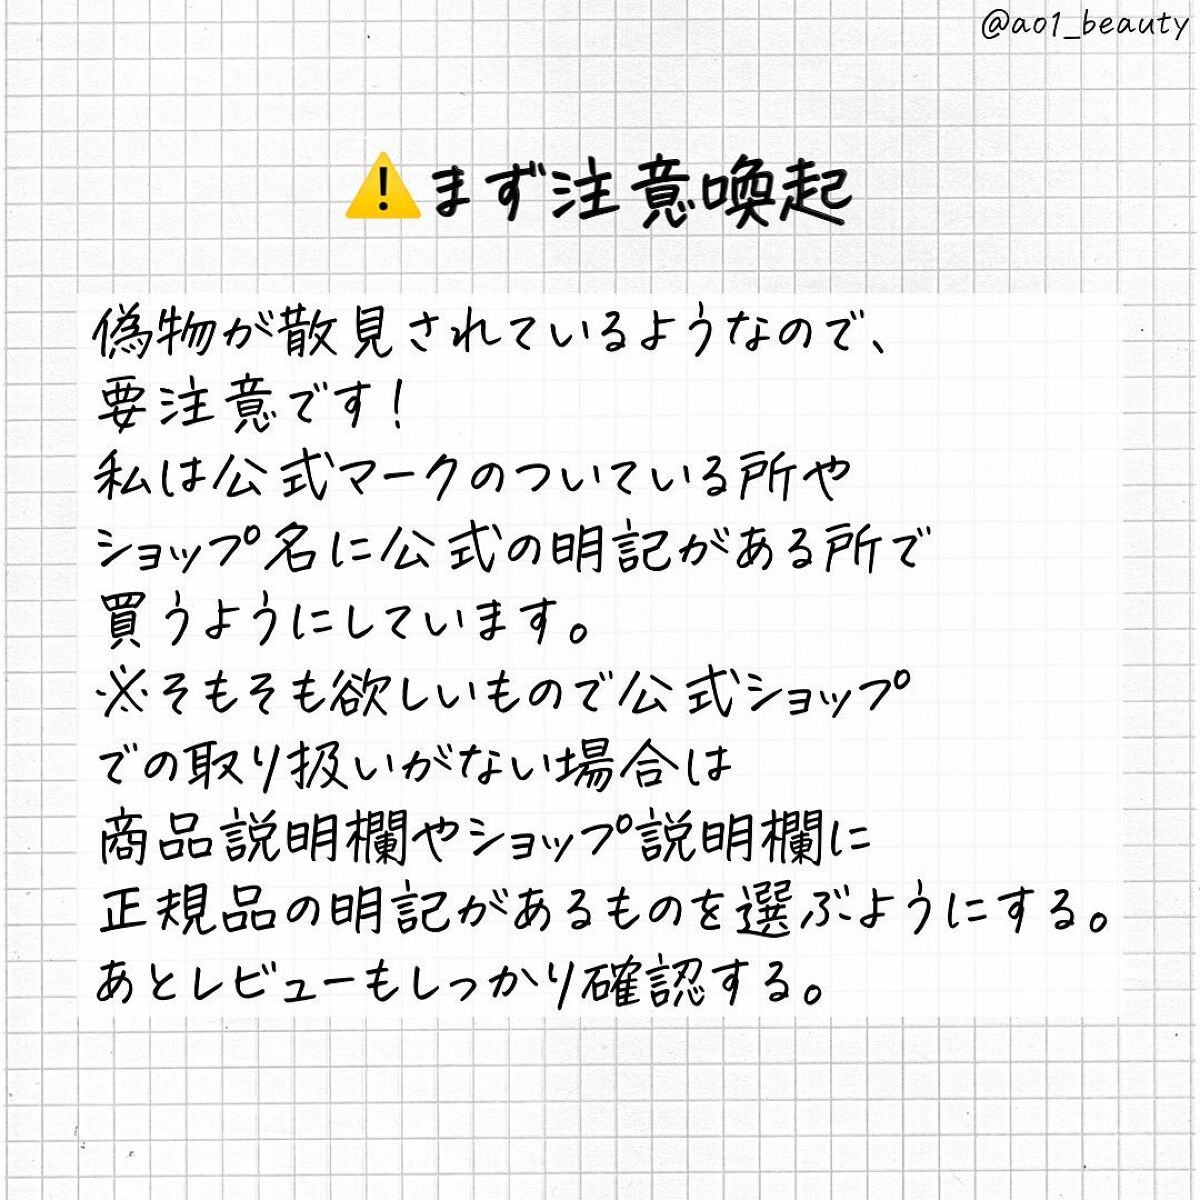 @ao1_beauty
⚠まず注意喚起
偽物が散見されているようなので、
要注意です！
私は公式マークのついている所や
ショップ名に公式の明記がある所で
買うようにしています。
※そもそも欲しいもので公式ショップ
での取り扱いがない場合は
商品説明欄やショップ説明欄に
正規品の明記があるものを選ぶようにする。
あとレビューもしっかり確認する。